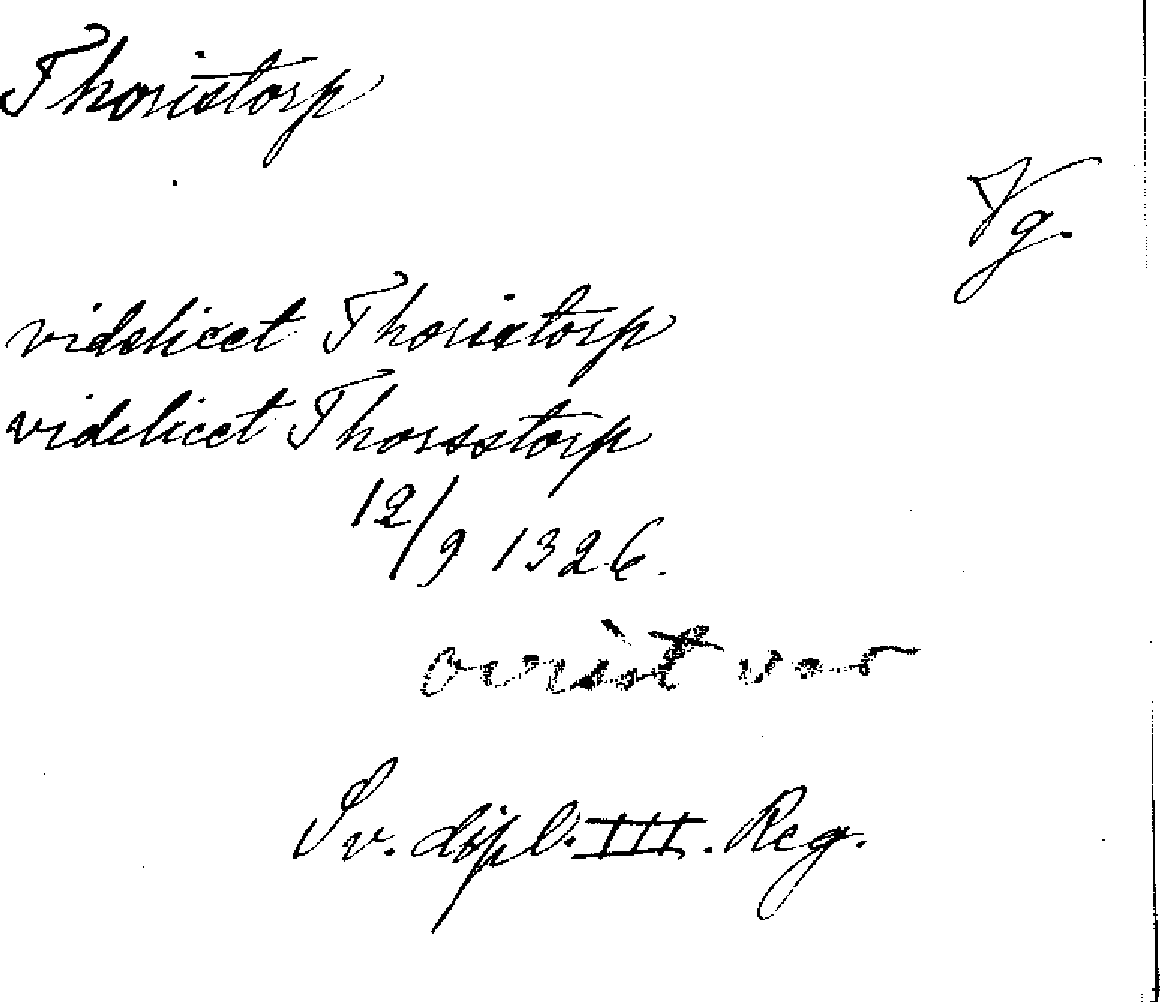 Thoristorp
Vg.
videlicet Thoristorp
videlicet Thorsstorp
12/9 1326.
ovisst var
Sv. dipl. III. Reg.